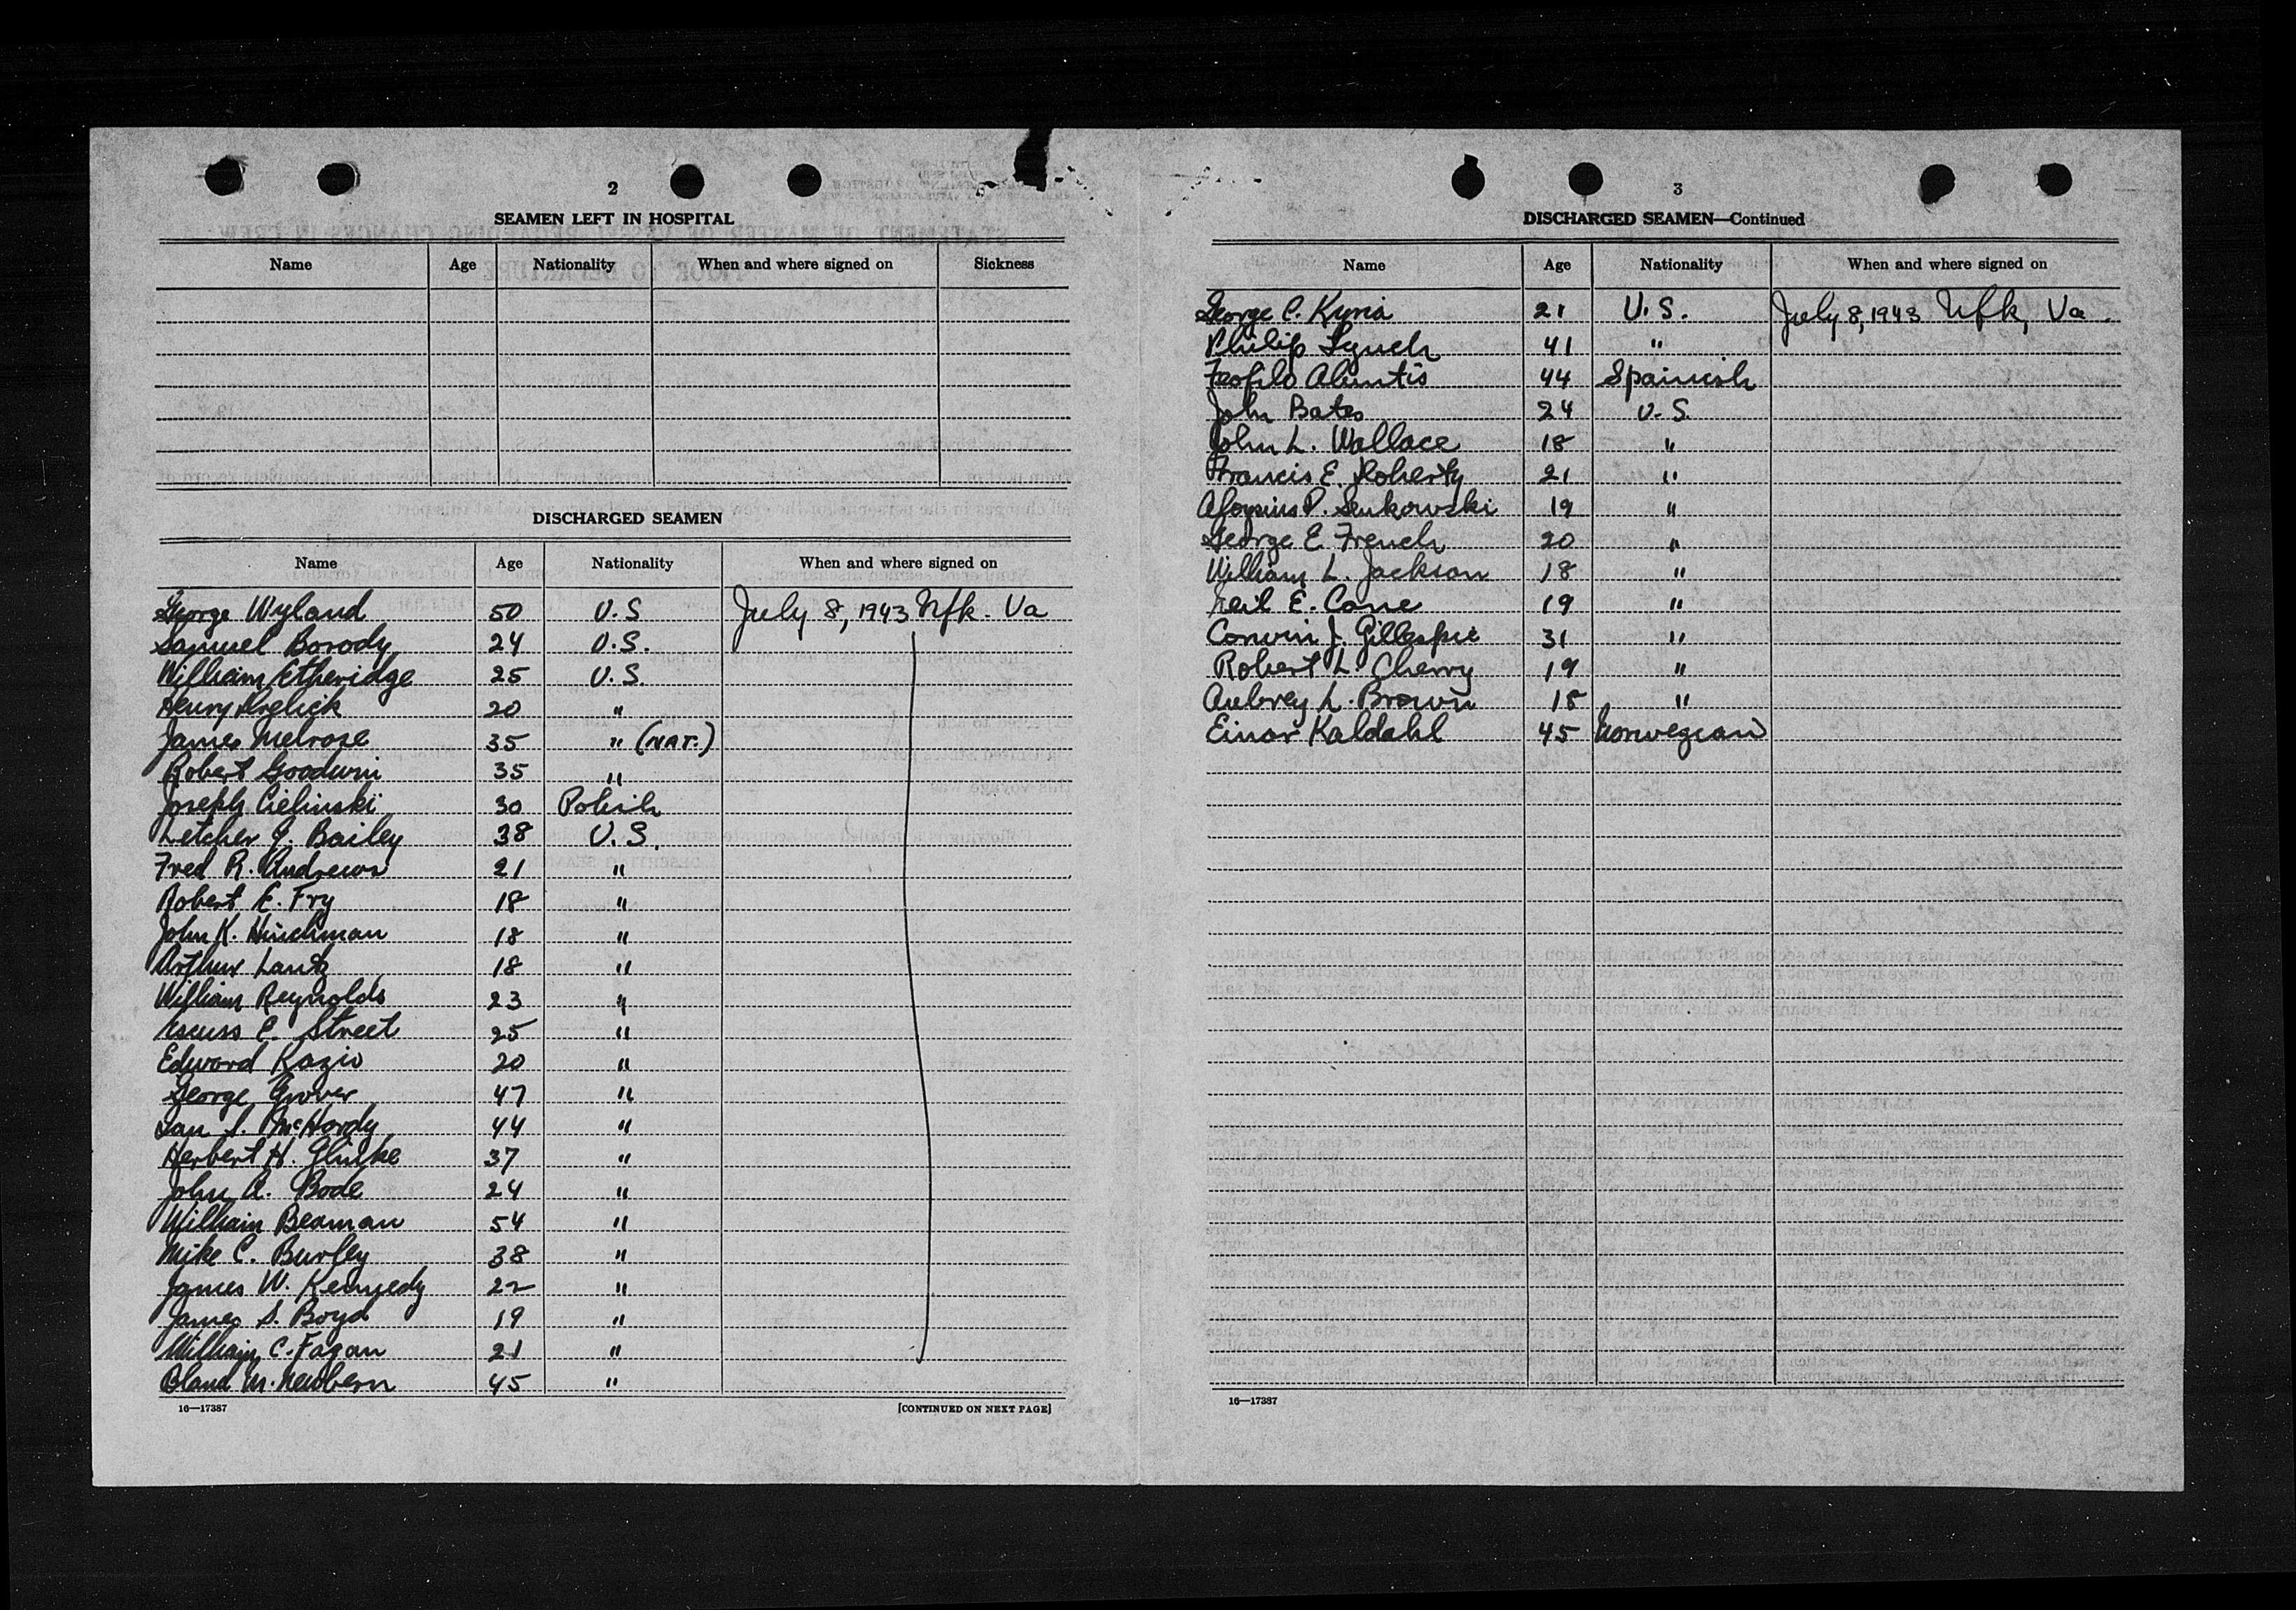 2
SEAMEN LEFT IN HOSPITAL
Name Age Nationality When and where signed on Sickness
DISCHARGED SEAMEN
Name Age Nationality When and where signed on
George Wyland 50 U.S July 8, 1943 Nfk. Va
Samuel Borody 24 U.S.
William Etheridge 25 U.S.
Henry 20 "
James Melrose 35 " (NAT.)
Robert Goodwin 35 "
Joseph Cielinski 30 Polish
Letcher G. Bailey 38 U.S.
Fred R. Andrews 21 "
Robert E. Fry 18 "
John K. Hinchman 18 "
Arthur Lantz 18 "
William Reynolds 23 "
E. Street 25 "
Edward Kazio 20 "
George Grover 47 "
Ian S. McHardy 44 "
Herbert H. 37 "
John A. Bode 24 "
William Beaman 54 "
Mike C. Burley 38 "
James W. Kennedy 22 "
James S. Boyd 19 "
William C. Fagan 21 "
Bland M. Newbern 45 "
16—17387 [CONTINUED ON NEXT PAGE]
3
DISCHARGED SEAMEN—Continued
Name Age Nationality When and where signed on
George C. Kyria 21 U.S. July 8, 1943 Nfk, Va.
Philip Lynch 41 "
Teofilo 44 Spanish
John Bates 24 U.S.
John L. Wallace 18 "
Francis E. Doherty 21 "
Aloysius P. Senkowski 19 "
George E. French 20 "
William L. Jackson 18 "
Neil E. Cone 19 "
Corwin J. Gillespie 31 "
Robert L. Cherry 19 "
Aubrey L. Brown 18 "
Einar Kaldahl 45 Norwegian
16—17387